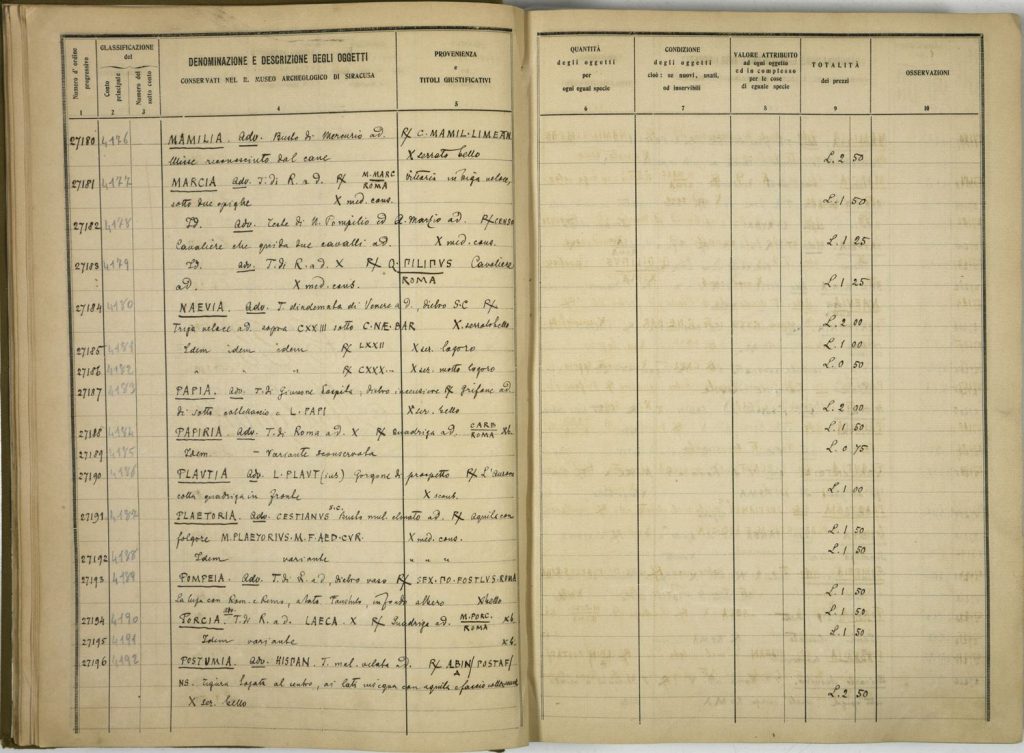 Numero d'ordine progressivo
CLASSIFICAZIONE
del
Conto principale
Numero del sotto conto
DENOMINAZIONE E DESCRIZIONE DEGLI OGGETTI
CONSERVATI NEL R. MUSEO ARCHEOLOGICO DI SIRACUSA
PROVENIENZA
e
TITOLI GIUSTIFICATIVI
QUANTITÀ
degli oggetti
per
ogni egual specie
CONDIZIONE
degli oggetti
cioè: se nuovi, usati,
od inservibili
VALORE ATTRIBUITO
ad ogni oggetto
ed in complesso
per le cose
di eguale specie
TOTALITÀ
dei prezzi
OSSERVAZIONI
1 2 3 4 5 6 7 8 9 10
27180 4176 MAMILIA. Adv. Busto di Mercurio ad. R/ C. MAMIL. LIMEAN
Ulisse riconosciuto dal cane X serrato bello L. 2 50
27181 4177 MARCIA Adv. T. di R. a d. R/ M. MARC ROMA vittoria in biga veloce,
sotto due spighe X med. cons. L. 1 50
27182 4178 Id. Adv. Teste di N. Pompilio ed A. Marzio ad. R/ CENSO
Cavaliere che guida due cavalli ad. X med. cons. L. 1 25
27183 4179 Id. adv. T. di R. a d. X R/ Q. PILIPVS ROMA Cavaliere
ad. X med. cons. L. 1 25
27184 4180 NAEVIA. Adv. T. diademata di Venere a d., dietro S·C R/
Triga veloce ad. sopra CXXIII sotto C·NÆ·BAR X serrato bello L. 2 00
27185 4181 Idem idem idem R/ LXXII X ser. logoro L. 1 00
27186 4182 " " " R/ CXXX X ser. molto logoro L. 0 50
27187 4183 PAPIA. adv. T. di Giunone Lospita, dietro R/ Grifone ad.
di sotto e L. PAPI X ser. bello L. 2 00
27188 4184 PAPIRIA. Adv. T. di Roma ad. X R/ Quadriga ad. CARB ROMA Xb. L. 1 50
27189 4185 Idem. - Variante sconservata L. 0 75
27190 4186 PLAVTIA adv. L. PLAVT (sus) Gorgone di prospetto R/ L'aurora
colla quadriga in fronte X scons. L. 1 00
27191 4187 PLAETORIA. Adv. CESTIANVS S.C. Busto mul. elmato ad. R/ Aquila con
folgore M. PLAETORIUS. M. F. AED. CVR. X med. cons. L. 1 50
27192 4188 Idem variante " " " L. 1 50
27193 4189 POMPEIA. Adv. T. di R. a d., dietro vaso R/ SEX. PO. FOSTLVS. ROMA
La lupa con Rom. e Remo, a lato Faustulo, in fondo albero X bello L. 1 50
27194 4190 PORCIA. adv. T. di R. a d. LAECA. X R/ Quadriga ad. M. PORC. ROMA Xb. L. 1 50
27195 4191 Idem variante X b. L. 1 50
27196 4192 POSTUMIA. Adv. HISPAN. T. mul. velata ad. R/ ALBIN / POST A F /
NS. Figura togata al centro, ai lati insegna con aquila e fascio
X ser. bello L. 2 50